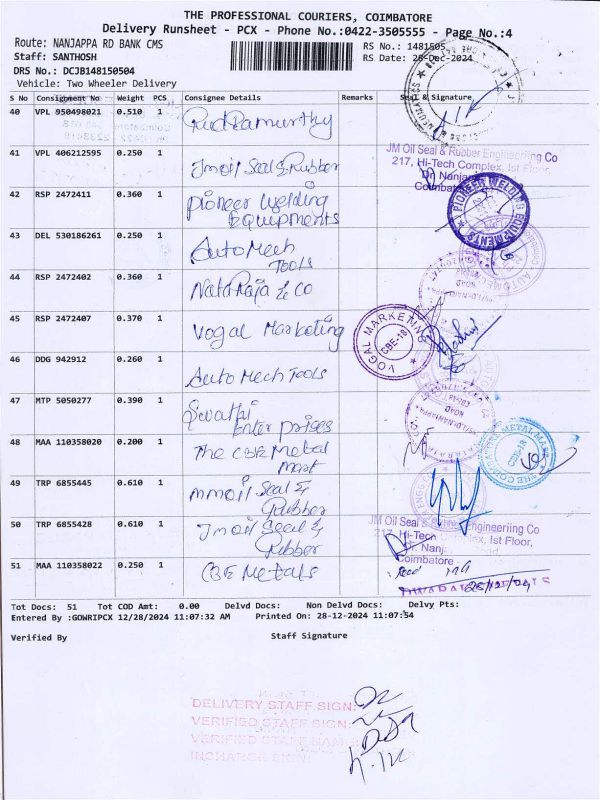 THE PROFESSIONAL COURIERS, COIMBATORE
Delivery Runsheet - PCX - Phone No.:0422-3505555 - Page No.:4
Route: NANJAPPA RD BANK CMS
RS No.: 1481505
Staff: SANTHOSH
RS Date: 28-Dec-2024
DRS No.: DCJB148150504
Vehicle: Two Wheeler Delivery
S No Consignment No Weight PCS Consignee Details Remarks Seal & Signature
40 VPL 950498021 0.510 1 Rudramurthy
41 VPL 406212595 0.250 1 Jmoil Seal & Rubber
JM Oil Seal & Rubber Engineeriing Co
217, Hi-Tech Complex, Ist Floor,
Dr. Nanjappa
Coimbatore
42 RSP 2472411 0.360 1 Pioneer Welding
Equipments
PIONEER WELDING EQUIPMENTS
43 DEL 530186261 0.250 1 Auto Mech
Tools
44 RSP 2472402 0.360 1 Nataraja & Co
45 RSP 2472407 0.370 1 Vogal Marketing
VOGAL MARKETING
CBE-18
46 DDG 942912 0.260 1 Auto Mech Tools
47 MTP 5050277 0.390 1 Swathi
Enterprises
48 MAA 110358020 0.200 1 The CBE Metal
Mart
THE COIMBATORE METAL MART
CBE-18
49 TRP 6855445 0.610 1 mmoil Seal &
Rubber
50 TRP 6855428 0.610 1 Jmoil Seal &
Rubber
JM Oil Seal & Rubber Engineeriing Co
217, Hi-Tech Complex, Ist Floor,
Dr. Nanj
Coimbatore
51 MAA 110358022 0.250 1 CBE Metals
28/12/24
Tot Docs: 51 Tot COD Amt: 0.00 Delvd Docs: Non Delvd Docs: Delvy Pts:
Entered By :GOWRIPCX 12/28/2024 11:07:32 AM Printed On: 28-12-2024 11:07:54
Verified By Staff Signature
DELIVERY STAFF SIGN:
VERIFIED STAFF SIGN:
VERIFIED STAFF NAME:
INCHARGE SIGN: